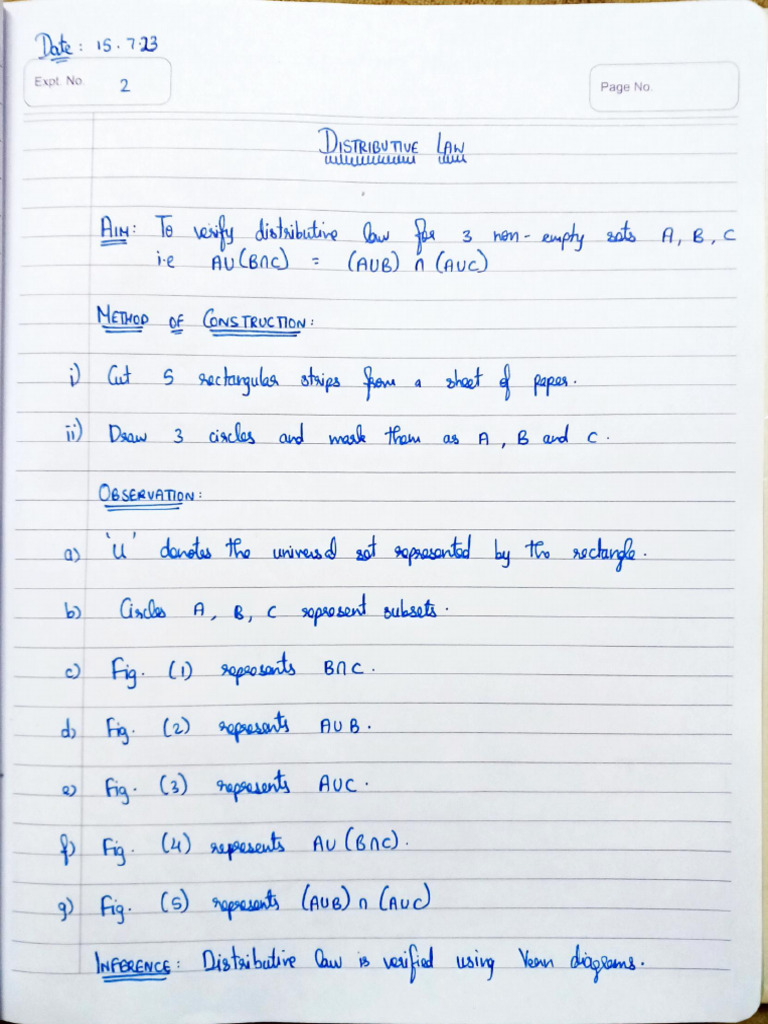 Date: 15.7.23
Expt. No. 2
Page No.
DISTRIBUTIVE LAW
AIM: To verify distributive law for 3 non-empty sets A, B, C
i.e A∪(B∩C) = (A∪B) ∩ (A∪C)
METHOD OF CONSTRUCTION:
i) Cut 5 rectangular strips from a sheet of paper.
ii) Draw 3 circles and mark them as A, B and C.
OBSERVATION:
a) 'U' denotes the universal set represented by the rectangle.
b) Circles A, B, C represent subsets.
c) Fig. (1) represents B∩C.
d) Fig. (2) represents A∪B.
e) Fig. (3) represents A∪C.
f) Fig. (4) represents A∪(B∩C).
g) Fig. (5) represents (A∪B)∩(A∪C)
INFERENCE: Distributive law is verified using Venn diagrams.